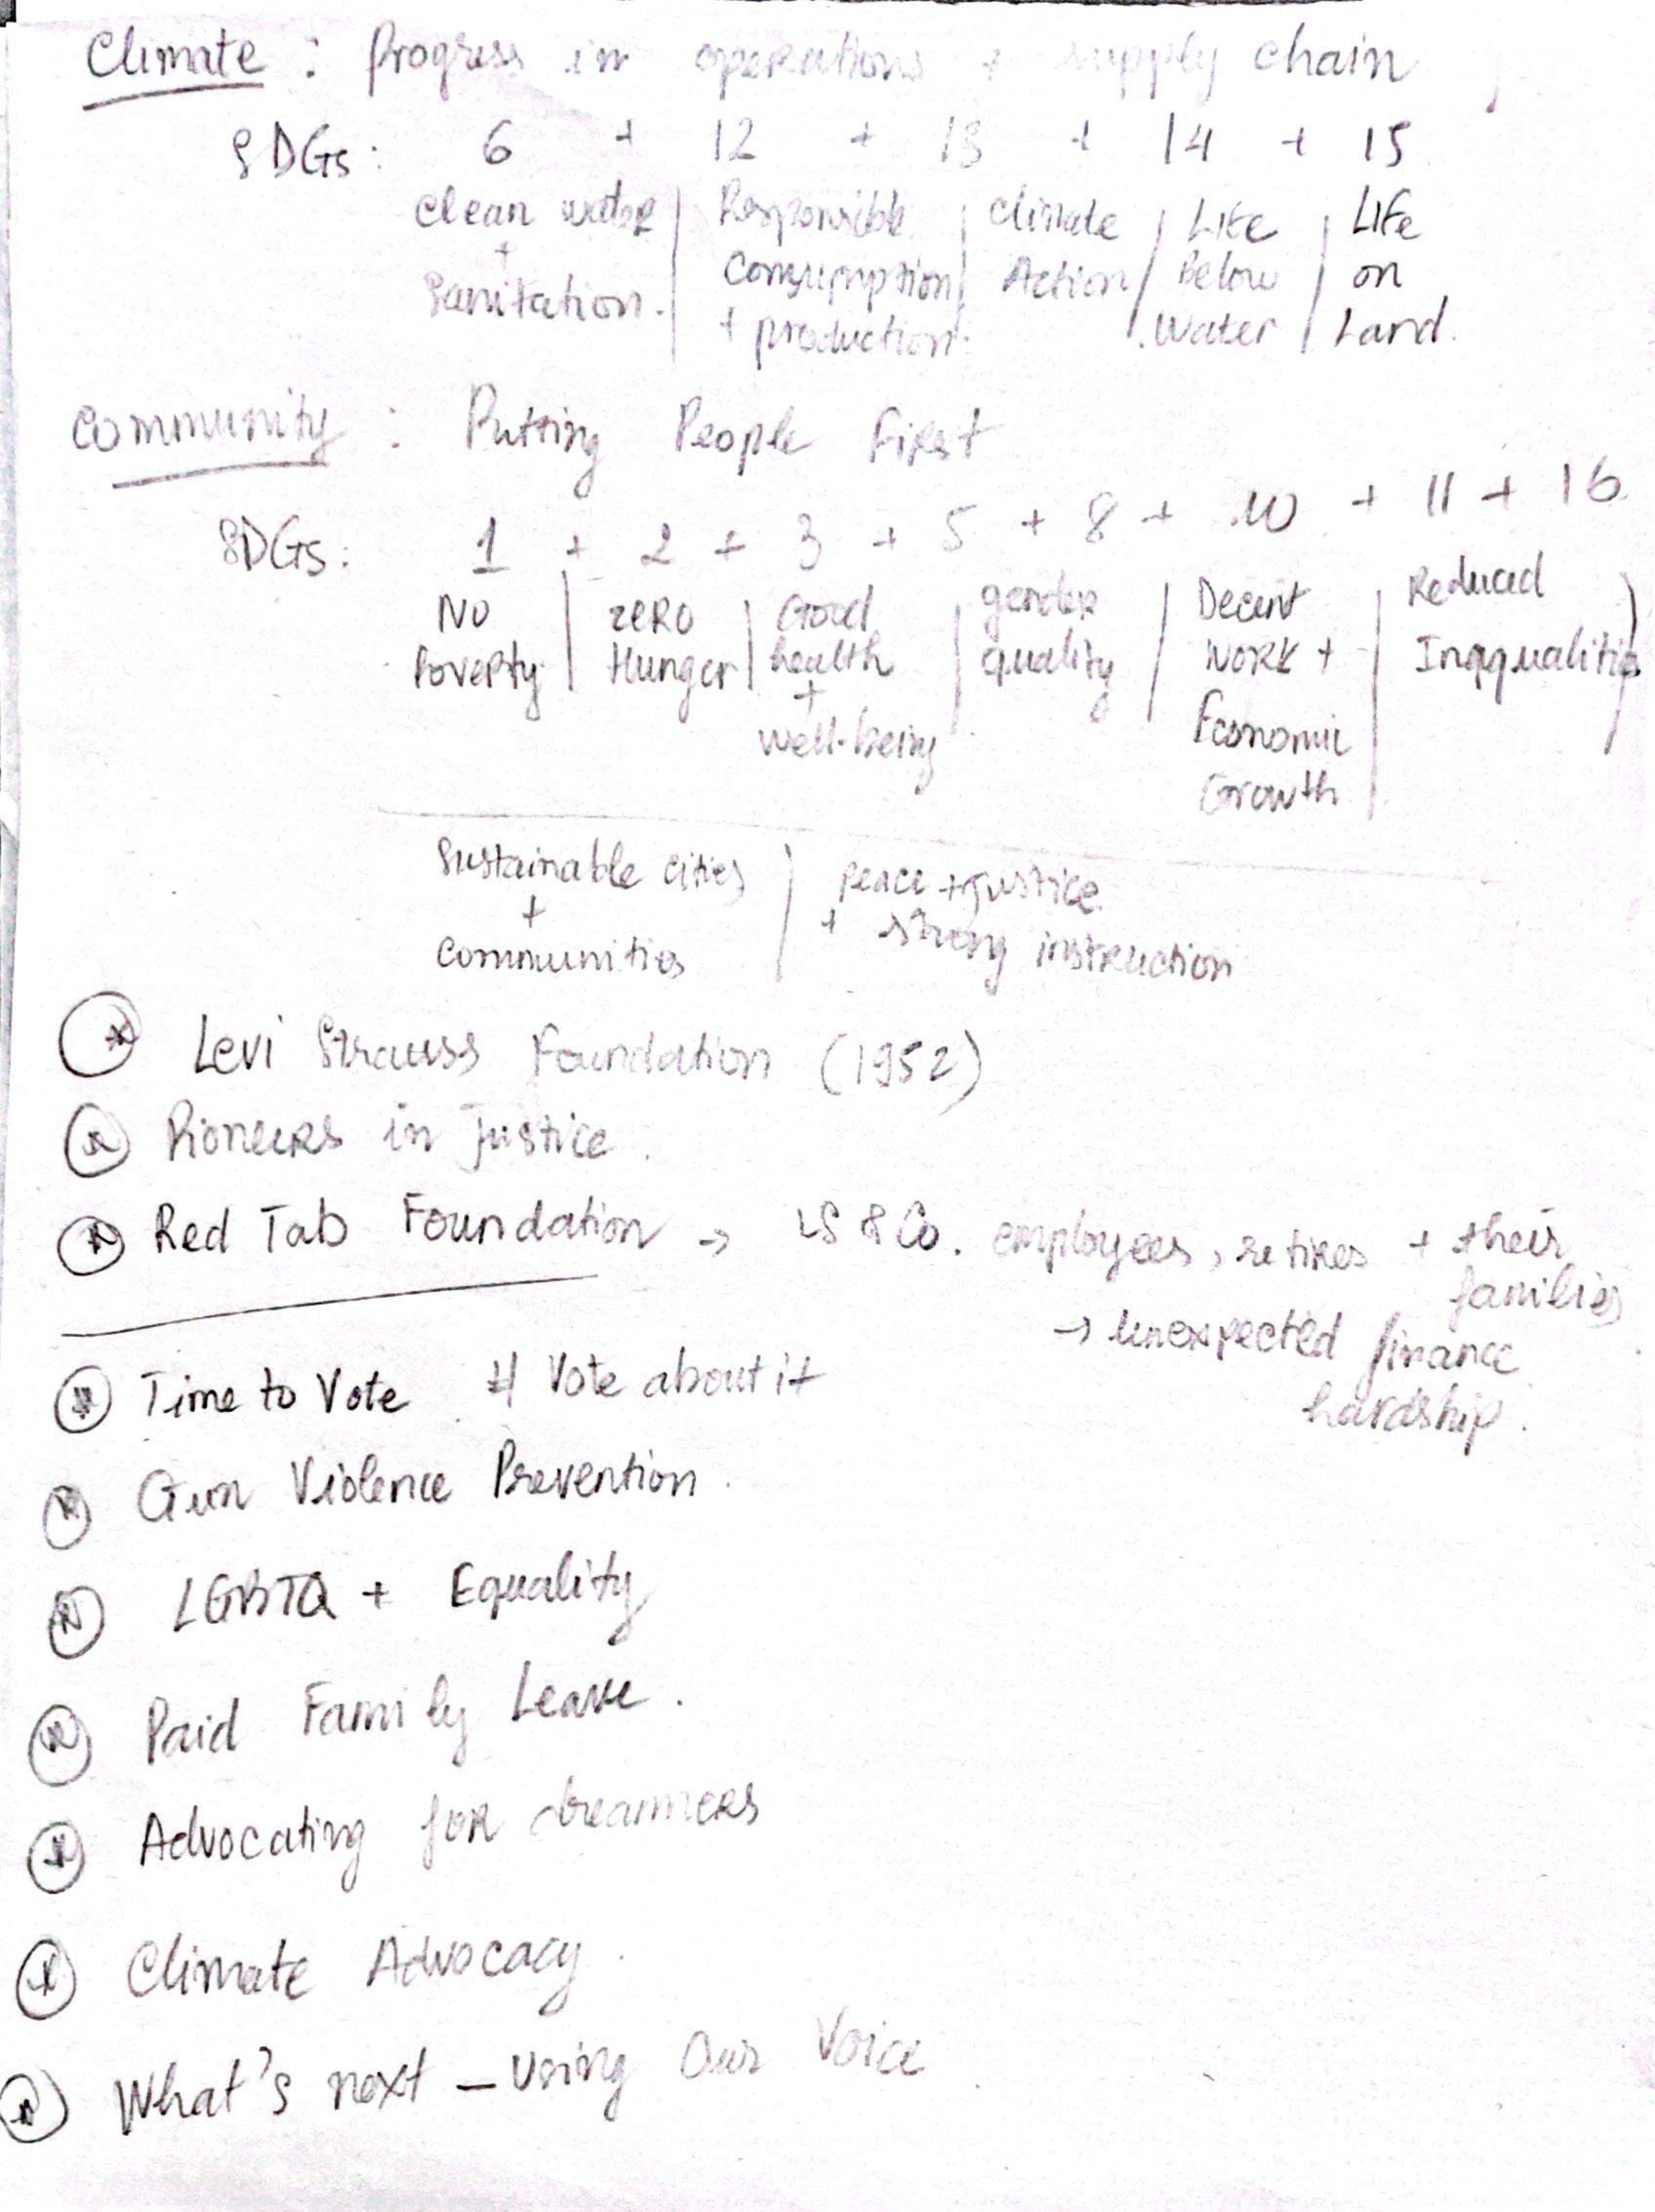 Climate : Progress in operations + supply chain
SDGs: 6 + 12 + 13 + 14 + 15
Clean water + Sanitation. | Responsible Consumption + production. | Climate Action | Life Below Water | Life on Land.
Community : Putting People First
SDGs: 1 + 2 + 3 + 5 + 8 + 10 + 11 + 16
No Poverty | Zero Hunger | Good health + well-being | gender quality | Decent work + Economic Growth | Reduced Inqqualities
Sustainable cities + communities | peace + justice + strong instruction
Levi Strauss Foundation (1952)
Pioneers in Justice.
Red Tab Foundation → LS & Co. employees, retires + their families
→ unexpected finance hardship.
Time to Vote # Vote about it
Gun Violence Prevention.
LGBTQ + Equality
Paid Family Leave.
Advocating for dreamers
Climate Advocacy.
What's next - Using Our Voice